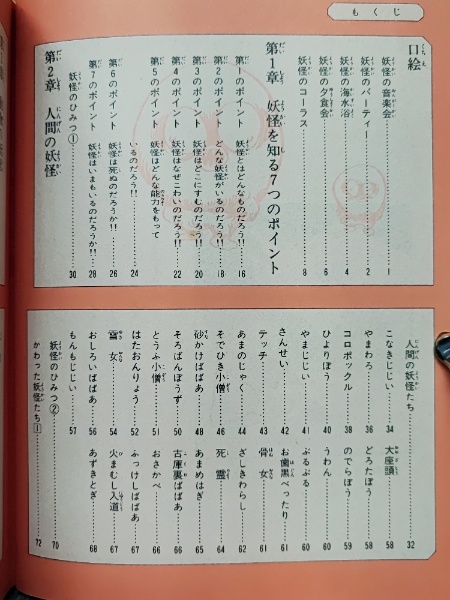 もくじ
口絵
妖怪の音楽会……1
妖怪のパーティー……2
妖怪の海水浴……4
妖怪の夕食会……6
妖怪のコーラス……8
第1章 妖怪を知る7つのポイント
第1のポイント 妖怪とはどんなものだろう!!……16
第2のポイント どんな妖怪がいるのだろう!!……18
第3のポイント 妖怪はどこにすむのだろう!!……20
第4のポイント 妖怪はなぜこわいのだろう!!……22
第5のポイント 妖怪はどんな能力をもって
いるのだろう!!……24
第6のポイント 妖怪は死ぬのだろうか!!……26
第7のポイント 妖怪はいまもいるのだろうか!!……28
妖怪のひみつ①……30
第2章 人間の妖怪
人間の妖怪たち……32
こなきじじい……34
やまわろ……36
コロポックル……38
ひよりぼう……40
やまじじい……41
さんせい……42
テッチ……43
あまのじゃく……44
そでひき小僧……46
砂かけばばあ……48
そろばんぼうず……50
とうふ小僧……51
はたおんりょう……52
雪女……54
おしろいばばあ……56
もんもじじい……57
大座頭……58
どろたぼう……58
のでらぼう……59
うわん……60
ぶるぶる……60
お歯黒べったり……61
骨女……61
ざしきわらし……62
死霊……64
あまめはぎ……65
古庫裏ばばあ……66
おさかべ……66
ふっけしばばあ……67
火まむし入道……67
あずきとぎ……68
妖怪のひみつ②……70
かわった妖怪たち①……72